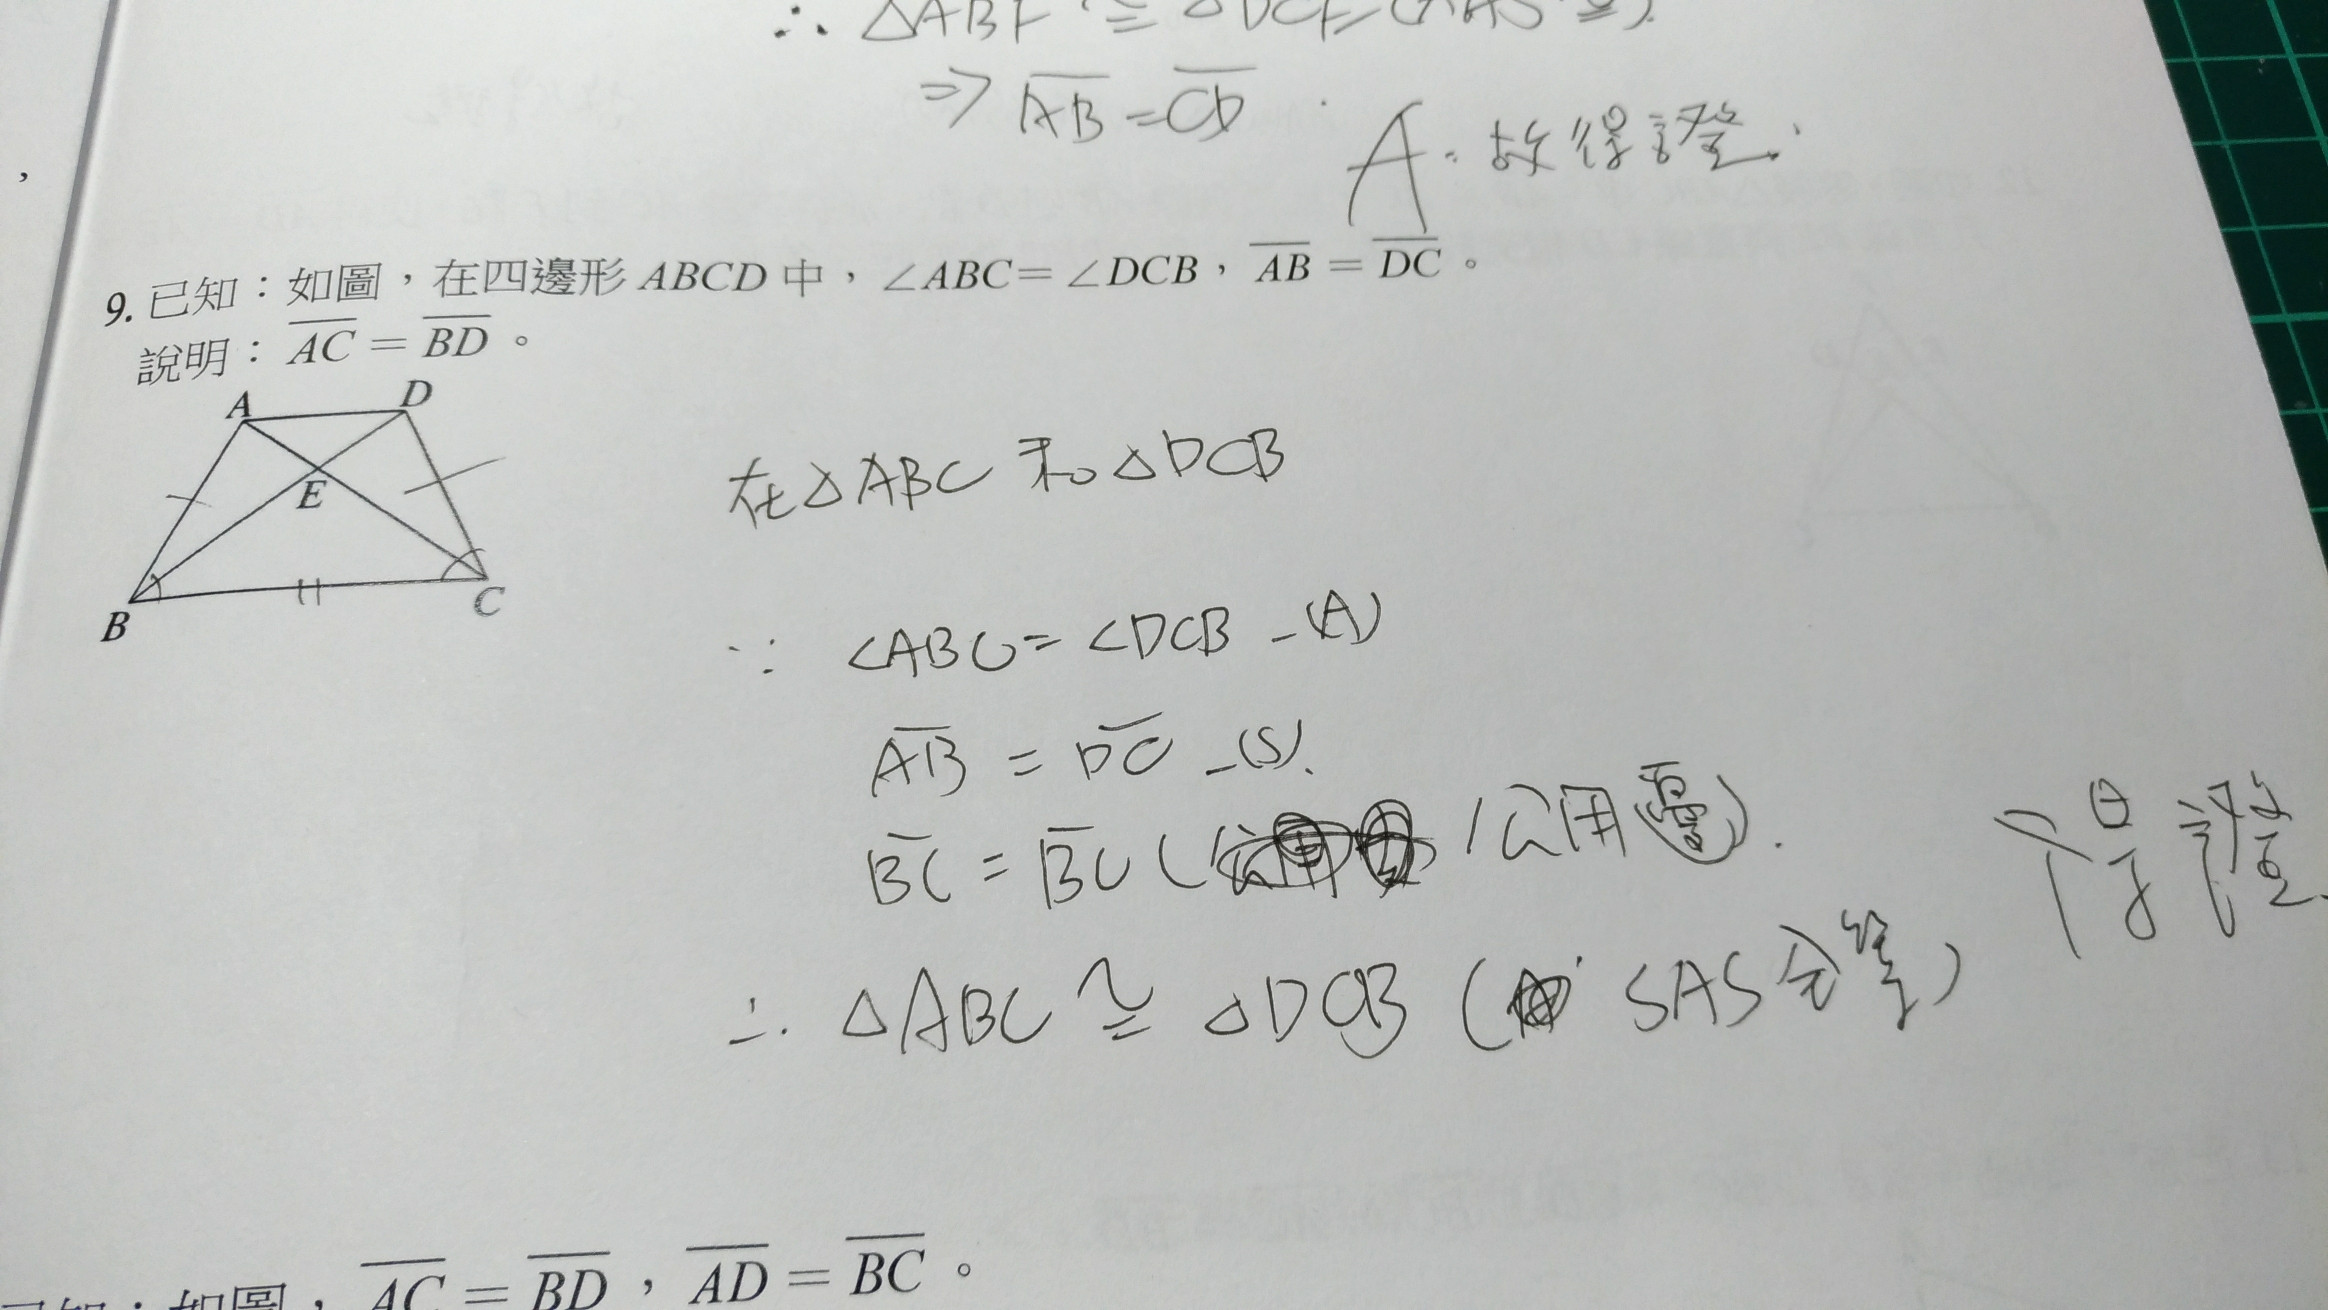 ∴ △ABF ≅ △DCE (AAS ≅).
⇒ AB = CD
A. 故得證.
,
9. 已知：如圖，在四邊形 ABCD 中，∠ABC=∠DCB，AB = DC。
說明：AC = BD。
A
D
E
B
C
在△ABC 和△DCB
∵ ∠ABC = ∠DCB -(A)
AB = DC -(S).
BC = BC (公用邊).
∴ △ABC ≅ △DCB (SAS全等)
得證.
已知：如圖，AC = BD，AD = BC。